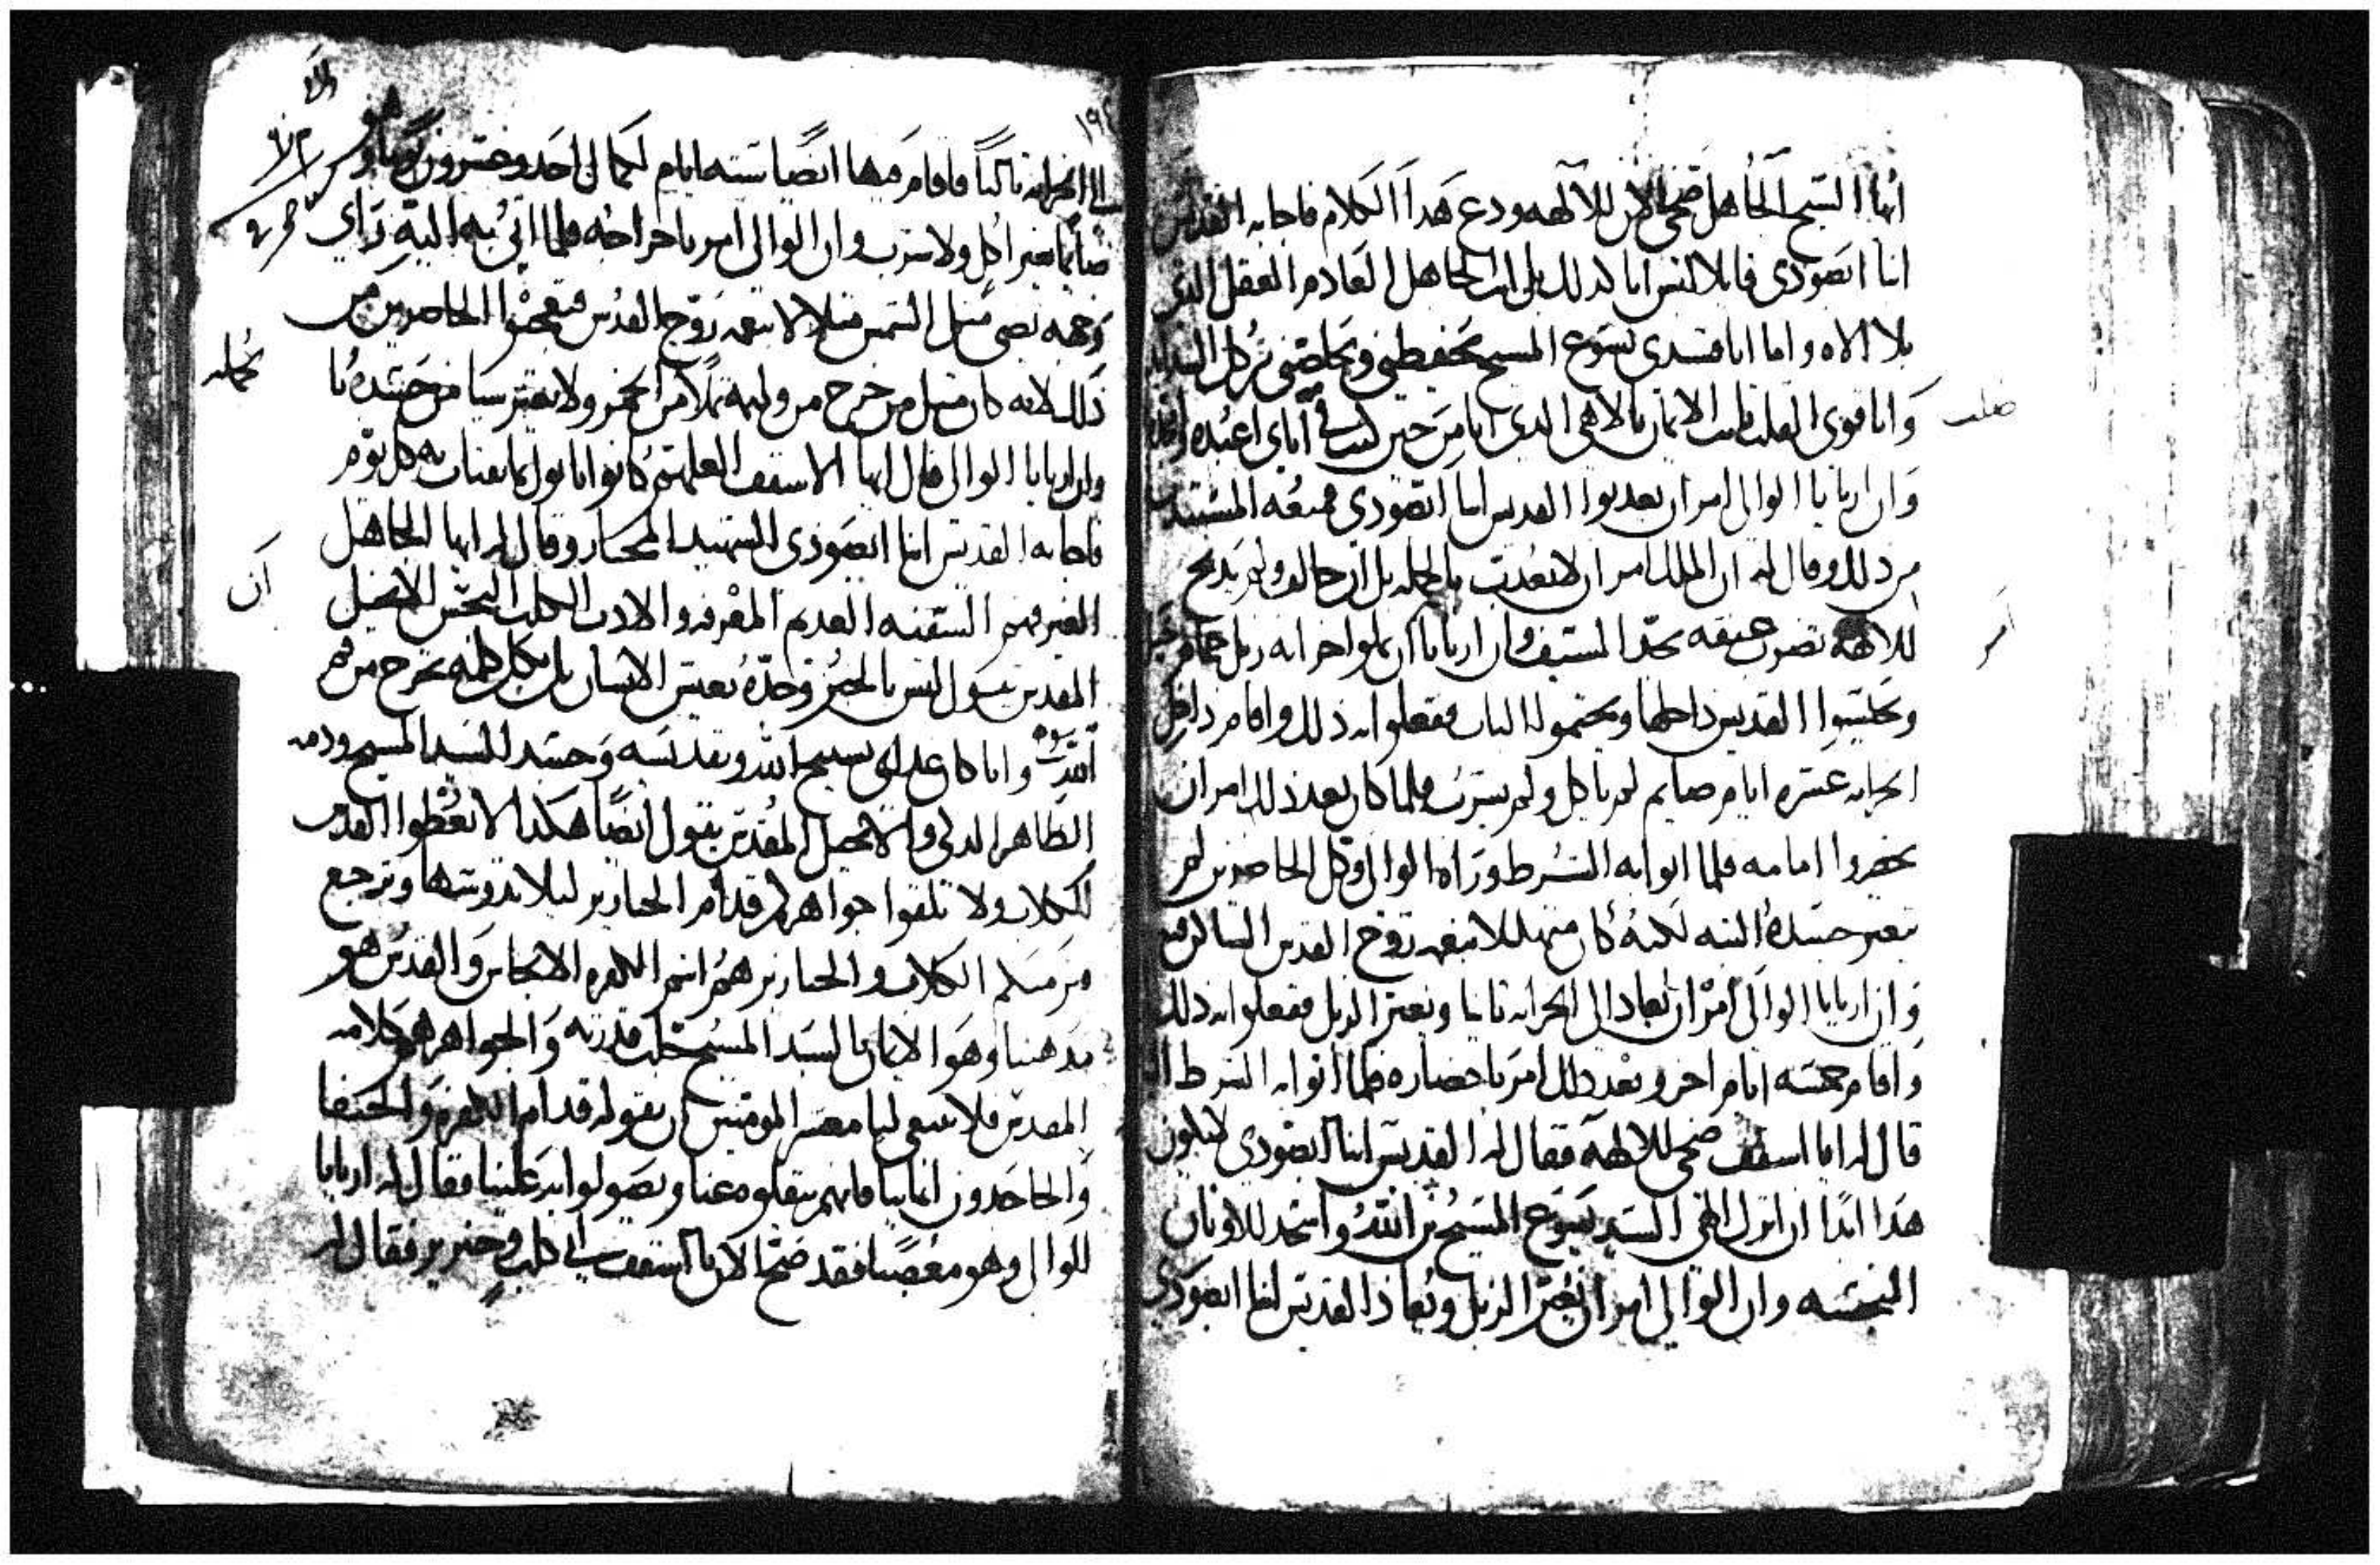 ايها الشيخ الجاهل ضحي الان للالهه ودع هدا الكلام فاجابه القديس
انا ابصودي قايلا ليس انا كدلك بل انت الجاهل العادم العقل الذي
بلا الاه واما انا فسيدي يسوع المسيح يحفظني ويخلصني من كل الشدايد
وانا قوي القلب ثابت الايمان بالاهي الدي انا من حين اباي اعبده
وان اريانا الوالي امر ان يعدبوا القديس انبا ابصودي فمنعه المستشير
من دلك وقال له ان الملك امر ان لا تعدب بالجمله بل ان خالف ولم يدبح
للالهة تضرب عنقه بحد السيف وان اريانا ان يملوا خزانه زبل حمام
ويحبسوا القديس داخلها ويختموا الباب ففعلوا به ذلك واقام داخل
الخزانه عشره ايام صايم لم ياكل ولم يشرب فلما كان بعد ذلك امر ان
يحضروا امامه فلما اتوا به الشرط وراه الوالي وكل الحاضرين لم
يتغير جسده البته لكنه كان متهللا بنعمة روح القدس الساكن فيه
وان اريانا الوالي امر ان يعاد الى الخزانه ثانيا ويغير الزبل ففعلوا به ذلك
واقام خمسه ايام اخر وبعد ذلك امر باحضاره فلما اتوا به الشرط
قال له ايا اسقف ضحي للالهة فقال له القديس انبا ابصودي لا يكون
هدا ابدا ان اترك الهي السيد يسوع المسيح بن الله واسجد للاوثان
النجسه وان الوالي امر ان يغير الزبل ويعاد القديس انبا ابصودي
١٩٤
الى الخزانه ثالثا فاقام فيها ايضا سته ايام لكمال احد وعشرون يوما وهو
صايما بغير اكل ولا شرب وان الوالي امر باخراجه فلما اتي به اليه راي
وجهه تضي مثل الشمس متلالا بنعمه روح القدس فتعجبوا الحاضرين من
ذلك لانه كان مثل من خرج من وليمه تملا من الخمر ولا يتغير شيا من جسده
وان اريانا الوالي قال ايها الاسقف العلهم كانوا ياتوك بما تقتات به كل يوم
فاجابه القديس انبا ابصودي الشهيد المختار وقال له ايها الجاهل
الغير فهم السفيه العديم المعرفه والادب الكلب النجس الانجيل
المقدس يقول ليس بالخبز وحده يعيش الانسان بل بكل كلمه تخرج من فم
الله وانا كان غداي تسبيح الله وتقديسه وجسد السيد المسيح ودمه
الطاهر الدكي والانجيل المقدس يقول ايضا هكدا لا تعطوا القدس
للكلاب ولا تلقوا جواهركم قدام الخنازير ليلا تدوسها وترجع
من مسلم الكلاب والخنازير هم انتم الكفره الانجاس والقدس هو
مدهبنا وهو الايمان بالسيد المسيح جلت قدرته والجواهر هو كلامه
المقدس فلا ينبغي لنا معشر المومنين ان نقوله قدام الكفره والحنفا
والجاحدون ايماننا فانهم ينقلوه عنا ويصولوا به علينا فقال له اريانا
الوالي وهو مغضبا فقد ضح الان يا اسقف اني كلب وخنزير فقال له